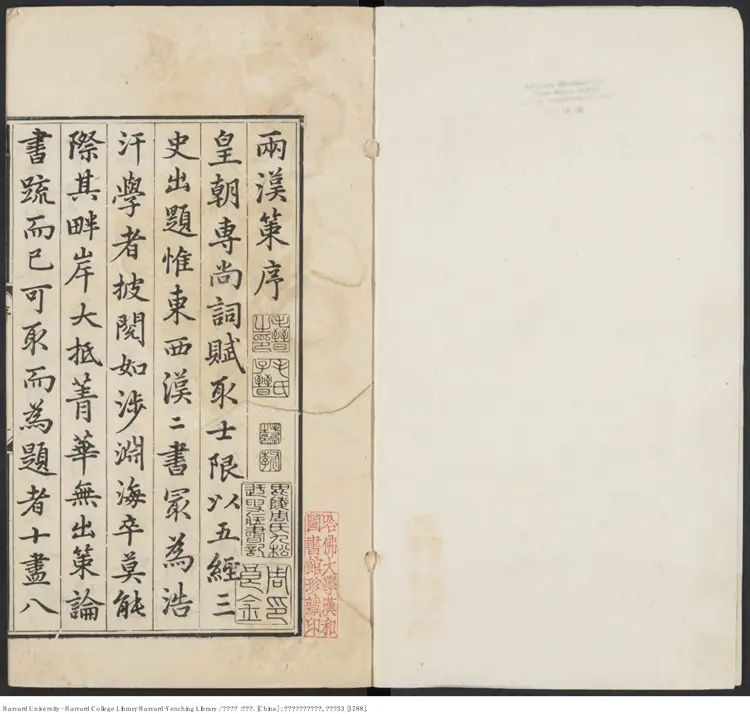 兩漢策序
皇朝専尚詞賦取士限以五經三
史出題惟東西漢二書冣為浩
汗學者披閱如涉淵海卒莫能
際其畔岸大抵菁華無出策論
書疏而已可取而為題者十盡八
毛晉
之印
毛氏
子晉
毘陵周氏九松
迂叟藏書記
周印
良金
哈佛大學漢和
圖書館珍藏印
Harvard University - Harvard College Library Harvard-Yenching Library / ???? :???. [China] : ??????????, ???53 [1788].